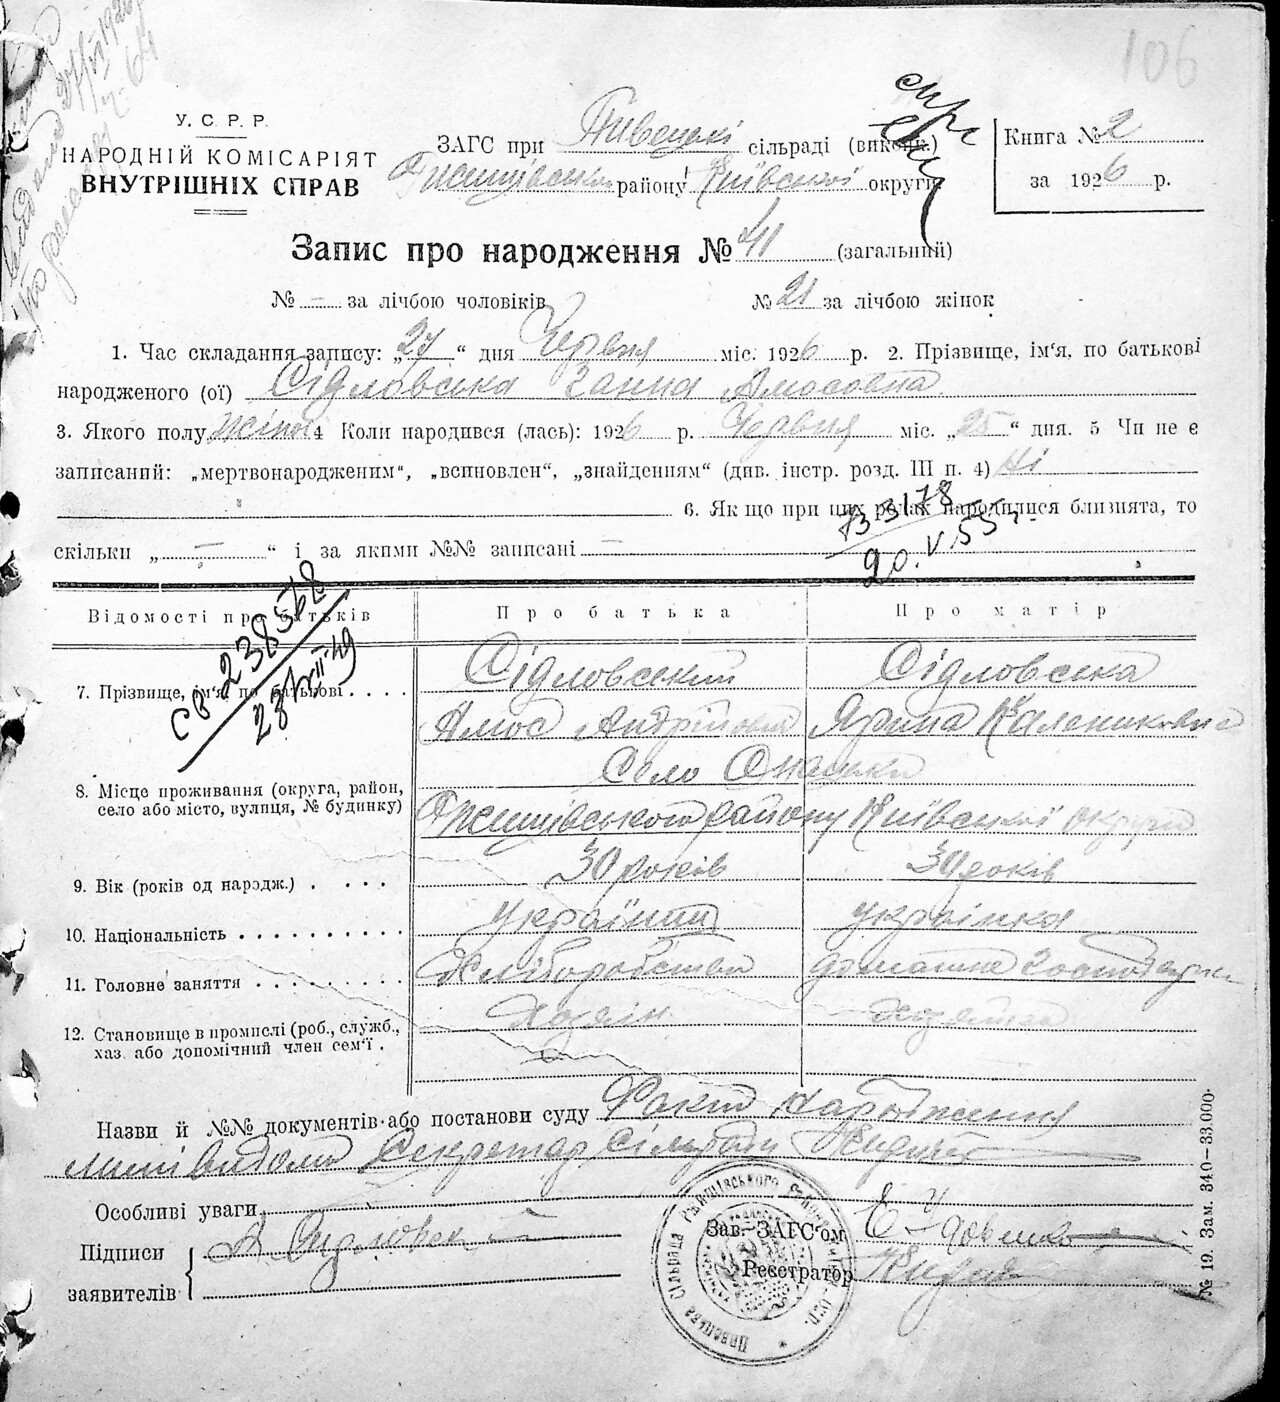 106
У. С. Р. Р.
НАРОДНІЙ КОМІСАРІЯТ
ВНУТРІШНІХ СПРАВ
ЗАГС при Пивецькі сільраді (викон.)
Ржищівськім району Київської округи
Книга № 2
за 1926 р.
Запис про народження № 41 (загальний)
№ — за лічбою чоловіків № 21 за лічбою жінок
1. Час складання запису: „27“ дня Червня міс. 1926 р. 2. Прізвище, ім'я, по батькові
народженого (ої) Сідловська Ганна Амосовна
3. Якого полу жіноч 4 Коли народився (лась): 1926 р. Червня міс. „25“ дня. 5 Чи не є
записаний: „мертвонародженим“, „всиновлен“, „знайденням“ (див. інстр. розд. III п. 4) Ні
6. Як що при цих родах народилися близнята, то
скільки „ — “ і за якими №№ записані —
20. V. 55 г.
Відомості про батьків Про батька Про матір
СВ 238562
28/XII-49
7. Прізвище, ім'я, по батькові . . . . Сідловський Сідловська
Амос Андрійович Ярина Каленикова
8. Місце проживання (округа, район, село або місто, вулиця, № будинку) Село Онацьки
Ржищівського району Київської округи
9. Вік (років од народж.) . . . . 30 років 30 років
10. Національність . . . . . . . . . . українець українка
11. Головне заняття . . . . . . . . . Хліборобство домашнє господарки
12. Становище в промислі (роб., служб., хаз. або допомічний член сем'ї . Хазяїн Хазяйка
Назви й №№ документів або постанови суду Факт народження
мині відомо Секретар сільради
Особливі уваги
Підписи
заявителів
А Сидловский
Зав. ЗАГС'ом
Реєстратор
№ 19. Зам. 340—33.000.